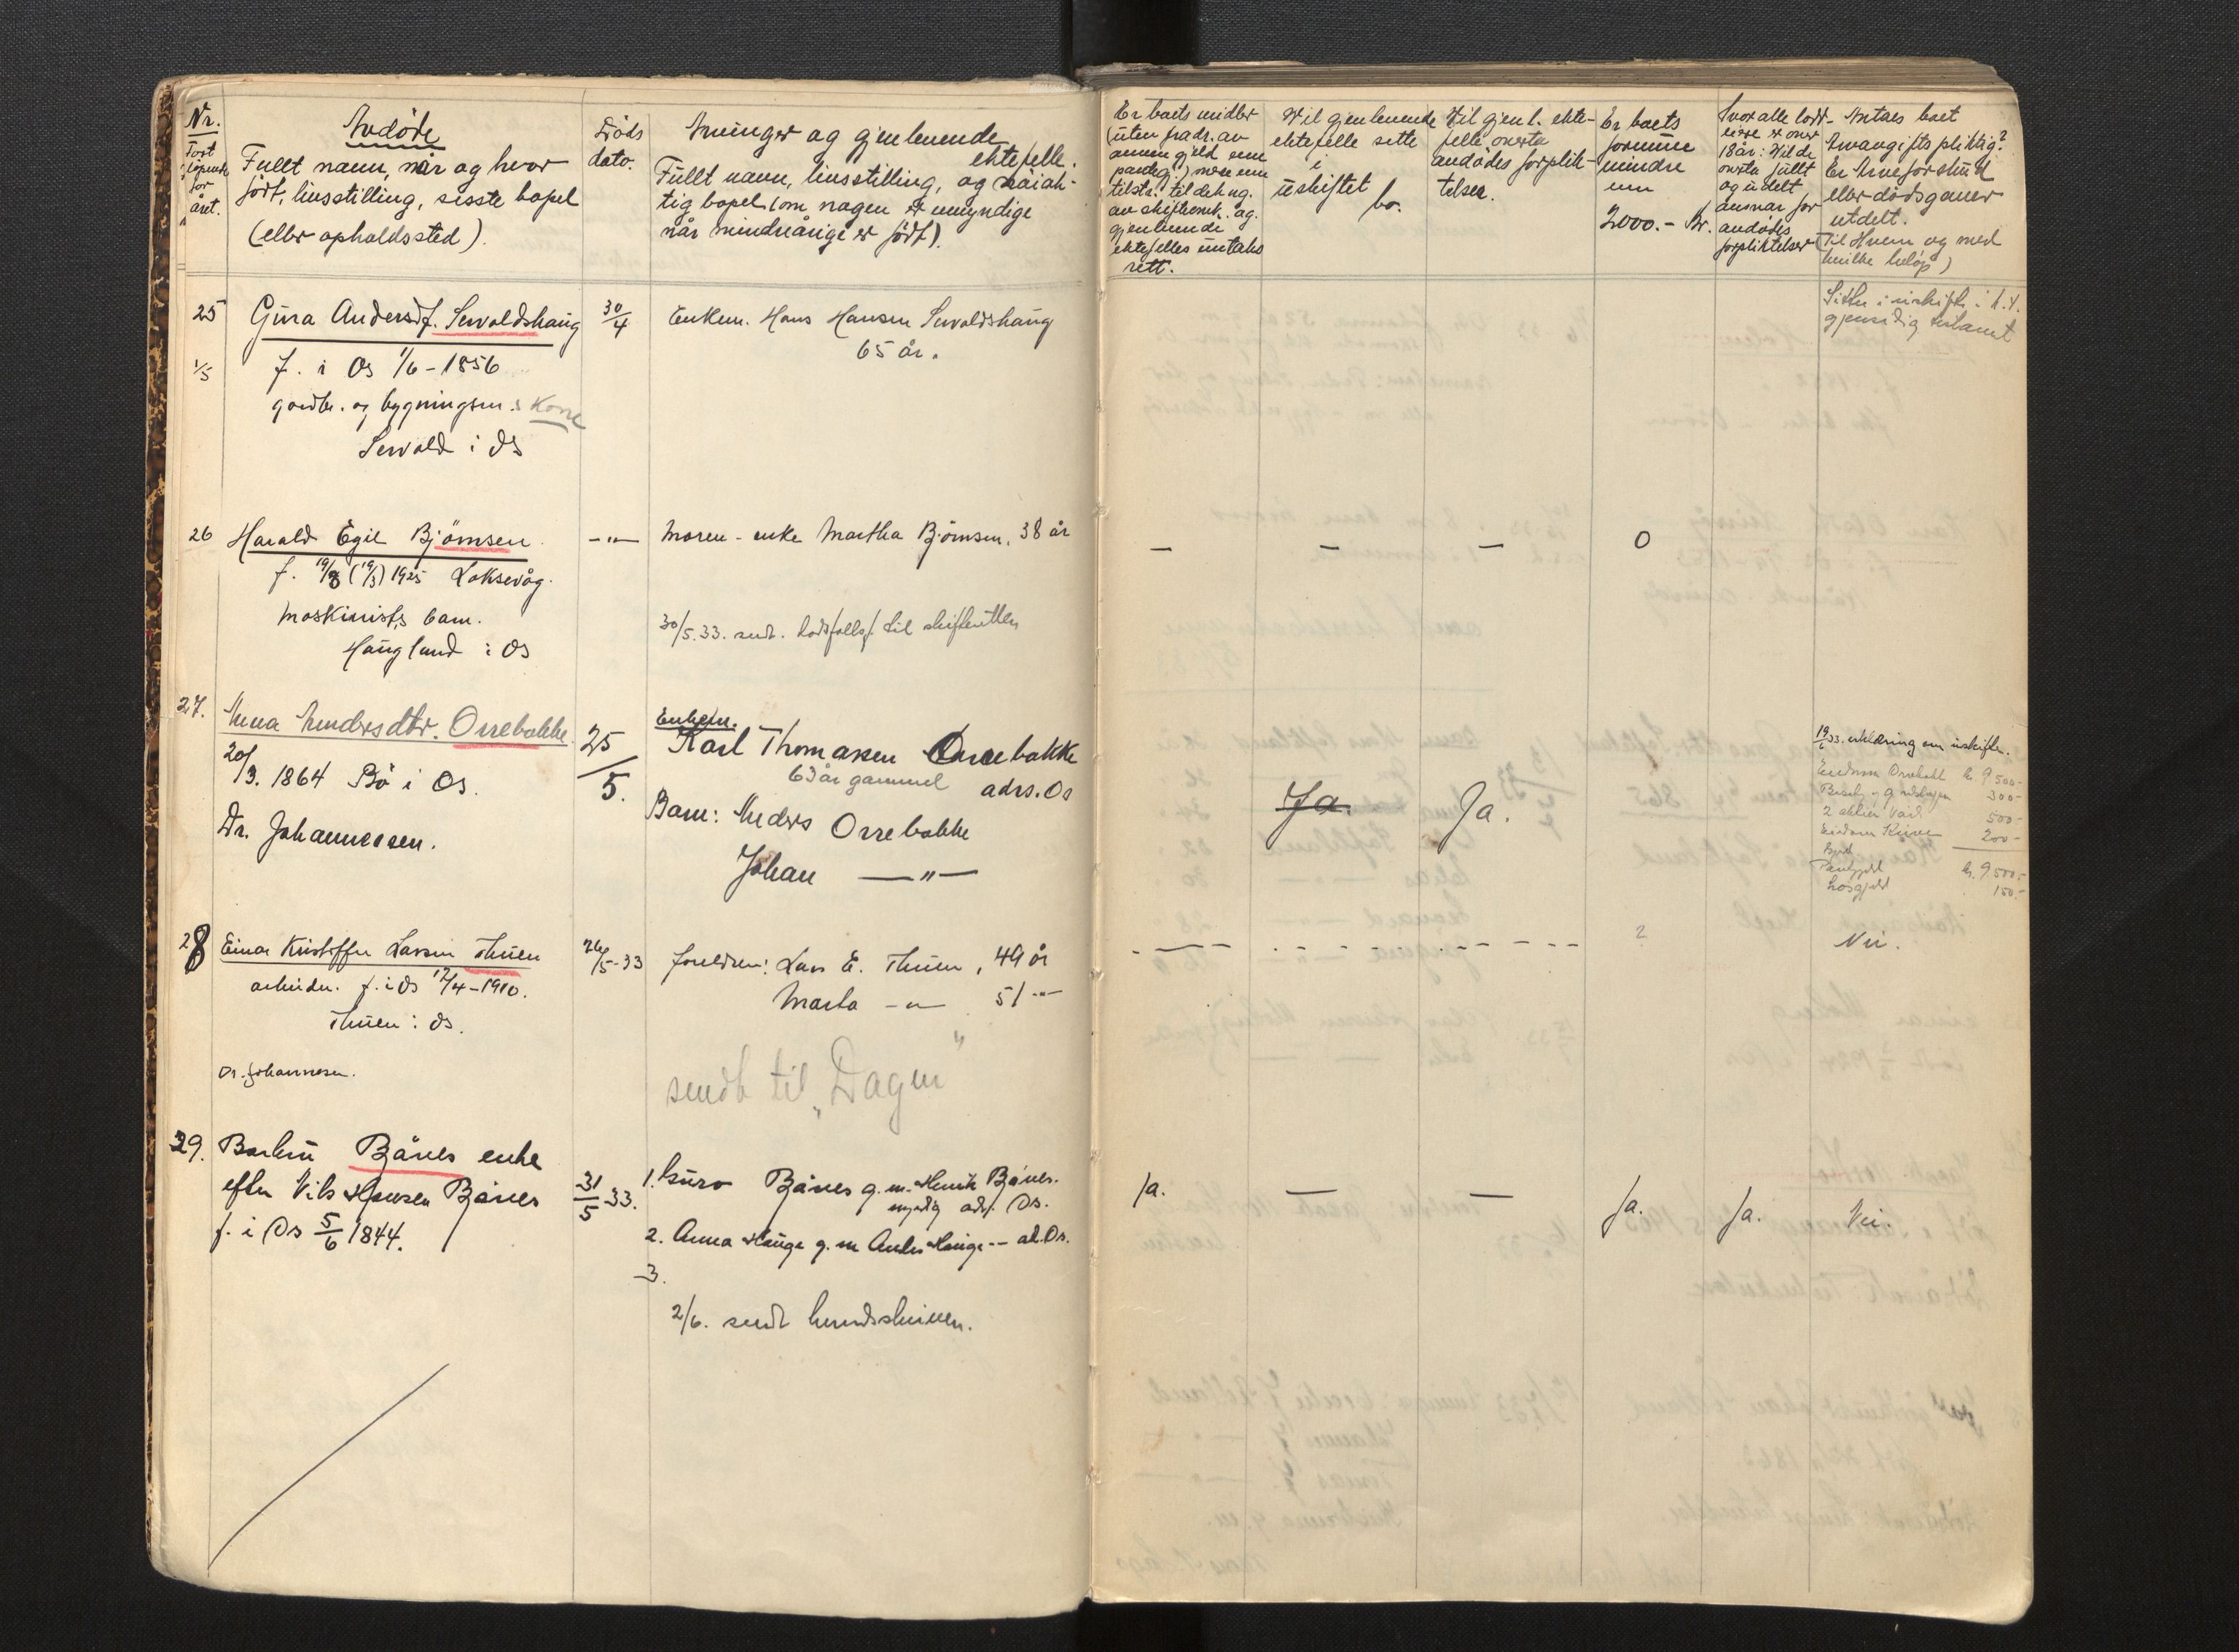 Nr.
Fort
löpende
for
året.
Avdöde
Fullt navn, når og hvor
född, livsstilling, sisste bopel
(eller opholdssted).
Döds
dato.
Arvinger og gjenlevende
ektefelle.
Fullt navn, livsstilling, og nöiak-
tig bopel (om nogen er umyndige
når mindreårige er född).
Er boets midler
(uten fradr. av
annen gjeld enn
pantegj.) mere enn
tilstr. til dekng.
av skifteomk. og
gjenlevende
ektefelles undtaks
rett.
Vil gjenlevende
ektefelle sitte
i
uskiftet
bo.
Vil gjenl. ekte-
felle overta
avdödes forplik-
telser.
Er boets
formue
mindre
enn
2000.- kr.
Hvor alle lodd-
eiere er over
18 år: Vil de
overta fullt
og udelt
ansvar for
avdödes
forpliktelser
Antaes boet
Arveavgiftspliktig?
Er Arveforskud
eller dödsgaver
utdelt.
(Til Hvem og med
hvilke belöp)
25
1/5
Gura Andersdf. Sevoldshaug
f. i Os 1/6 - 1856
gardbr. og bygningsm.s kone
Sevold i Os
30/4
Enkem. Hans Hansen Sevoldshaug
65 år.
Sitter i uskifte i h.t.
gjensidig testamt
26
Harald Egil Björnsen.
f. 19/8 (19/3) 1925 Laksevåg.
maskinists barn.
Haugland i Os
-"-
Moren - enke Martha Björnsen, 38 år
30/5.33. sendt. dödsfallsf. til skifteretten
- - - 0
27.
Anna Andersdtr. Orrebakke.
20/3. 1864 Bö i Os.
Dr. Johannessen.
25/5.
Enkem.
Karl Thomassen Orrebakke
63 år gammel adrs. Os
Barn: Anders Orrebakke
Johan -"-
Ja.
Ja.
19/6 33. erklæring om uskifte.
Eiendom Orrebakk kr. 9500-
300-
2 aktier 500-
Eiendom 200-
Gjeld
Pantgjeld kr. 9.500.-
Lösgjeld 150.-
28
Einar Kristoffer Larsen Thuen
arbeider. f. i Os 17/4 - 1910.
Thuen i Os.
Dr. Johannesen.
26/5-33
foreldren: Lars E. Thuen, 49 år
Marta -"- 51 -"-
sendt til „Dagen"
?
Nei.
29.
Barbru Bånes enke
efter Nils Hansen Bånes
f. i Os 5/6 1844.
31/5 33.
1. Guro Bånes g.m. Henrik Bånes.
myndig adr. Os.
2. Anna Hauge g.m Anders Hauge -- ad. Os.
3.
2/6. sendt lensdskriveren.
Ja. - - Ja. Ja. Nei.